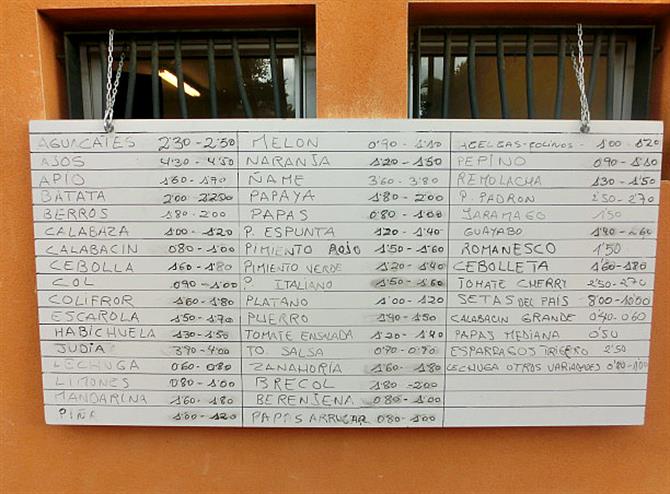 AGUACATES 2'30-2'50
AJOS 4'30-4'50
APIO 1'60-1'70
BATATA 2'00
BERROS 1'80-2'00
CALABAZA 1'00-1'20
CALABACIN 0'80-1'00
CEBOLLA 1'60-1'80
COL 0'90-1'00
COLIFROR 1'60-1'80
ESCAROLA 1'50-1'70
HABICHUELA 1'30-1'50
JUDIA 3'90-4'00
LECHUGA 0'60-0'80
LIMONES 0'80-1'00
MANDARINA 1'60-1'80
PIÑA 1'00-1'20
MELON 0'90-1'10
NARANJA 1'20-1'50
ÑAME 3'60-3'80
PAPAYA 1'80-2'00
PAPAS 0'80-1'00
P. ESPUNTA 1'20-1'40
PIMIENTO ROJO 1'50-1'60
PIMIENTO VERDE 1'20-1'40
P. ITALIANO 1'50-1'60
PLATANO 1'00-1'20
PUERRO 1'40-1'50
TOMATE ENSALADA 1'20-1'40
TO. SALSA
ZANAHORIA 1'60-1'80
BRECOL 1'80-2'00
BERENJENA 0'80-1'00
PAPAS ARRUGAR 0'80-1'00
ACELGAS- 1'00-1'20
PEPINO 0'90-1'10
REMOLACHA 1'30-1'50
P. PADRON 2'50-2'70
JARAMAGO 1'50
GUAYABO
ROMANESCO 1'50
CEBOLLETA 1'60-1'80
TOMATE CHERRY 2'50-2'70
SETAS DEL PAIS 8'00-10'00
CALABACIN GRANDE 0'40-0'60
PAPAS MEDIANA 0'50
ESPARRAGOS TRIGERO 2'50
LECHUGA OTROS VARIADADES 0'80-1'00